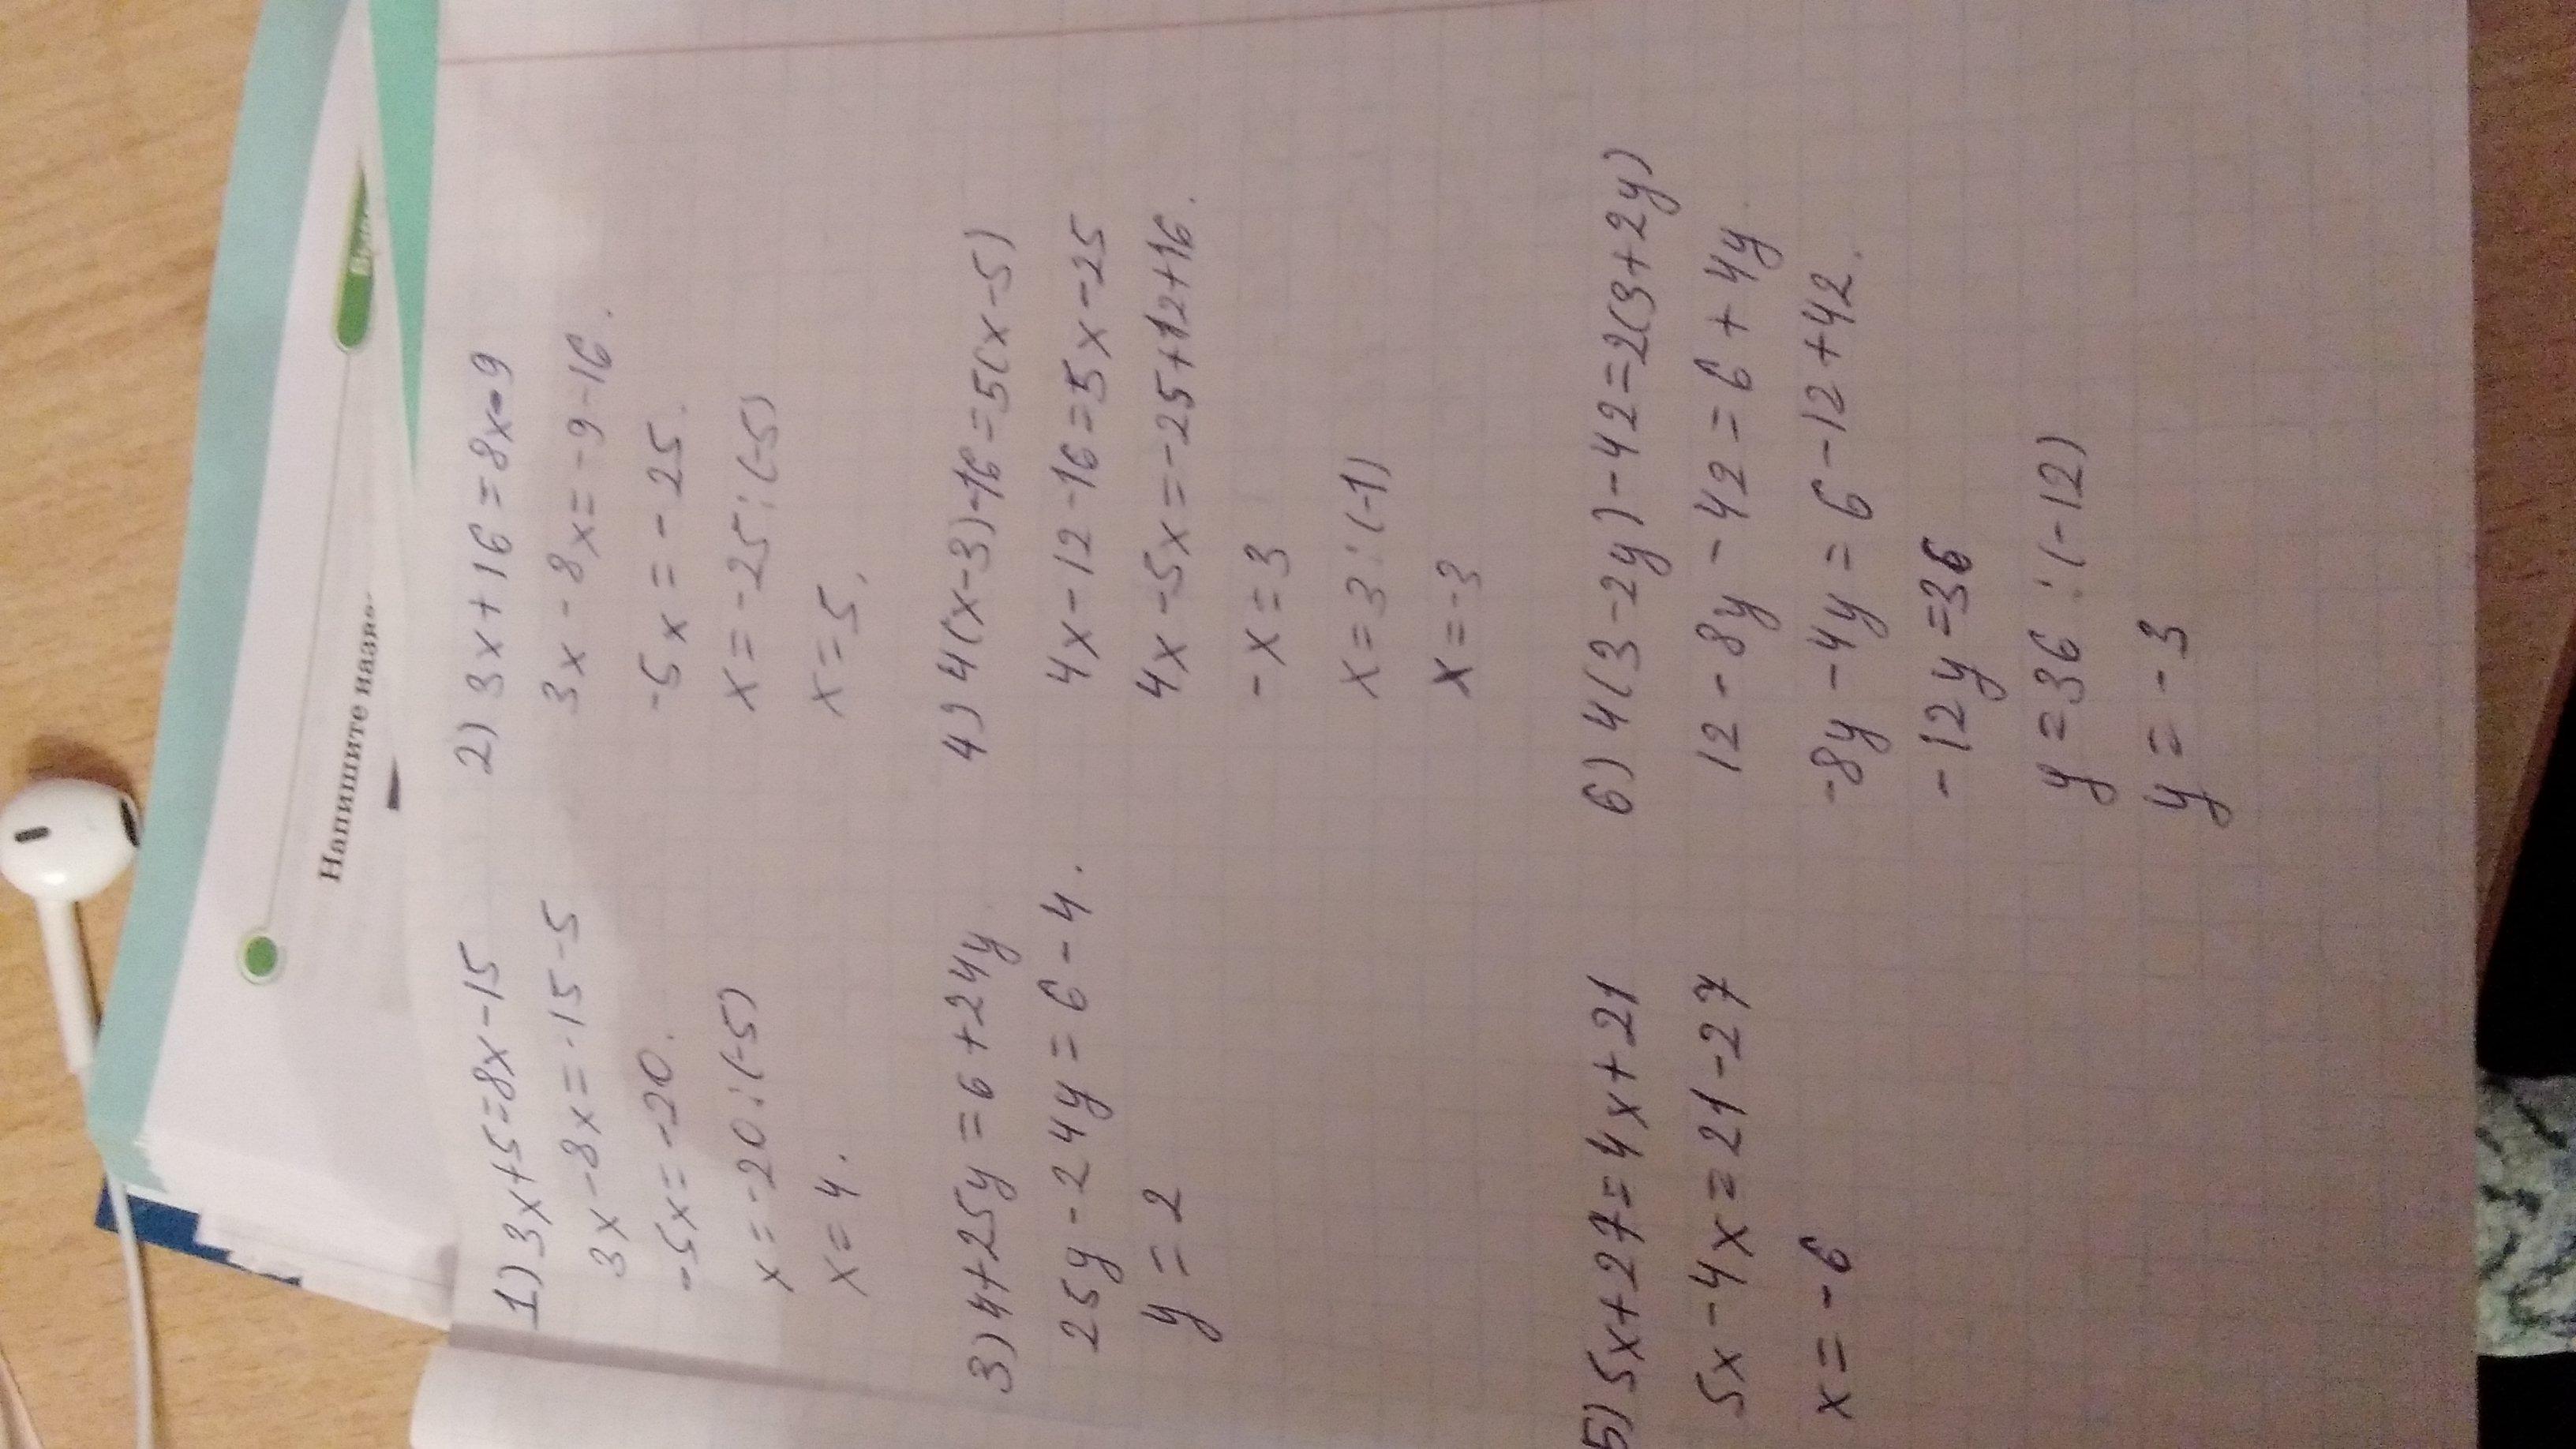 Напишите
1) 3x+5=8x-15
3x-8x=-15-5
-5x=-20.
x=-20:(-5)
x=4.
2) 3x+16=8x-9
3x-8x=-9-16.
-5x=-25.
x=-25:(-5)
x=5.
3) 4+25y=6+24y
25y-24y=6-4.
y=2
4) 4(x-3)-16=5(x-5)
4x-12-16=5x-25
4x-5x=-25+12+16.
-x=3
x=3:(-1)
x=-3
5) 5x+27=4x+21
5x-4x=21-27
x=-6
6) 4(3-2y)-42=2(3+2y)
12-8y-42=6+4y.
-8y-4y=6-12+42.
-12y=36
y=36:(-12)
y=-3